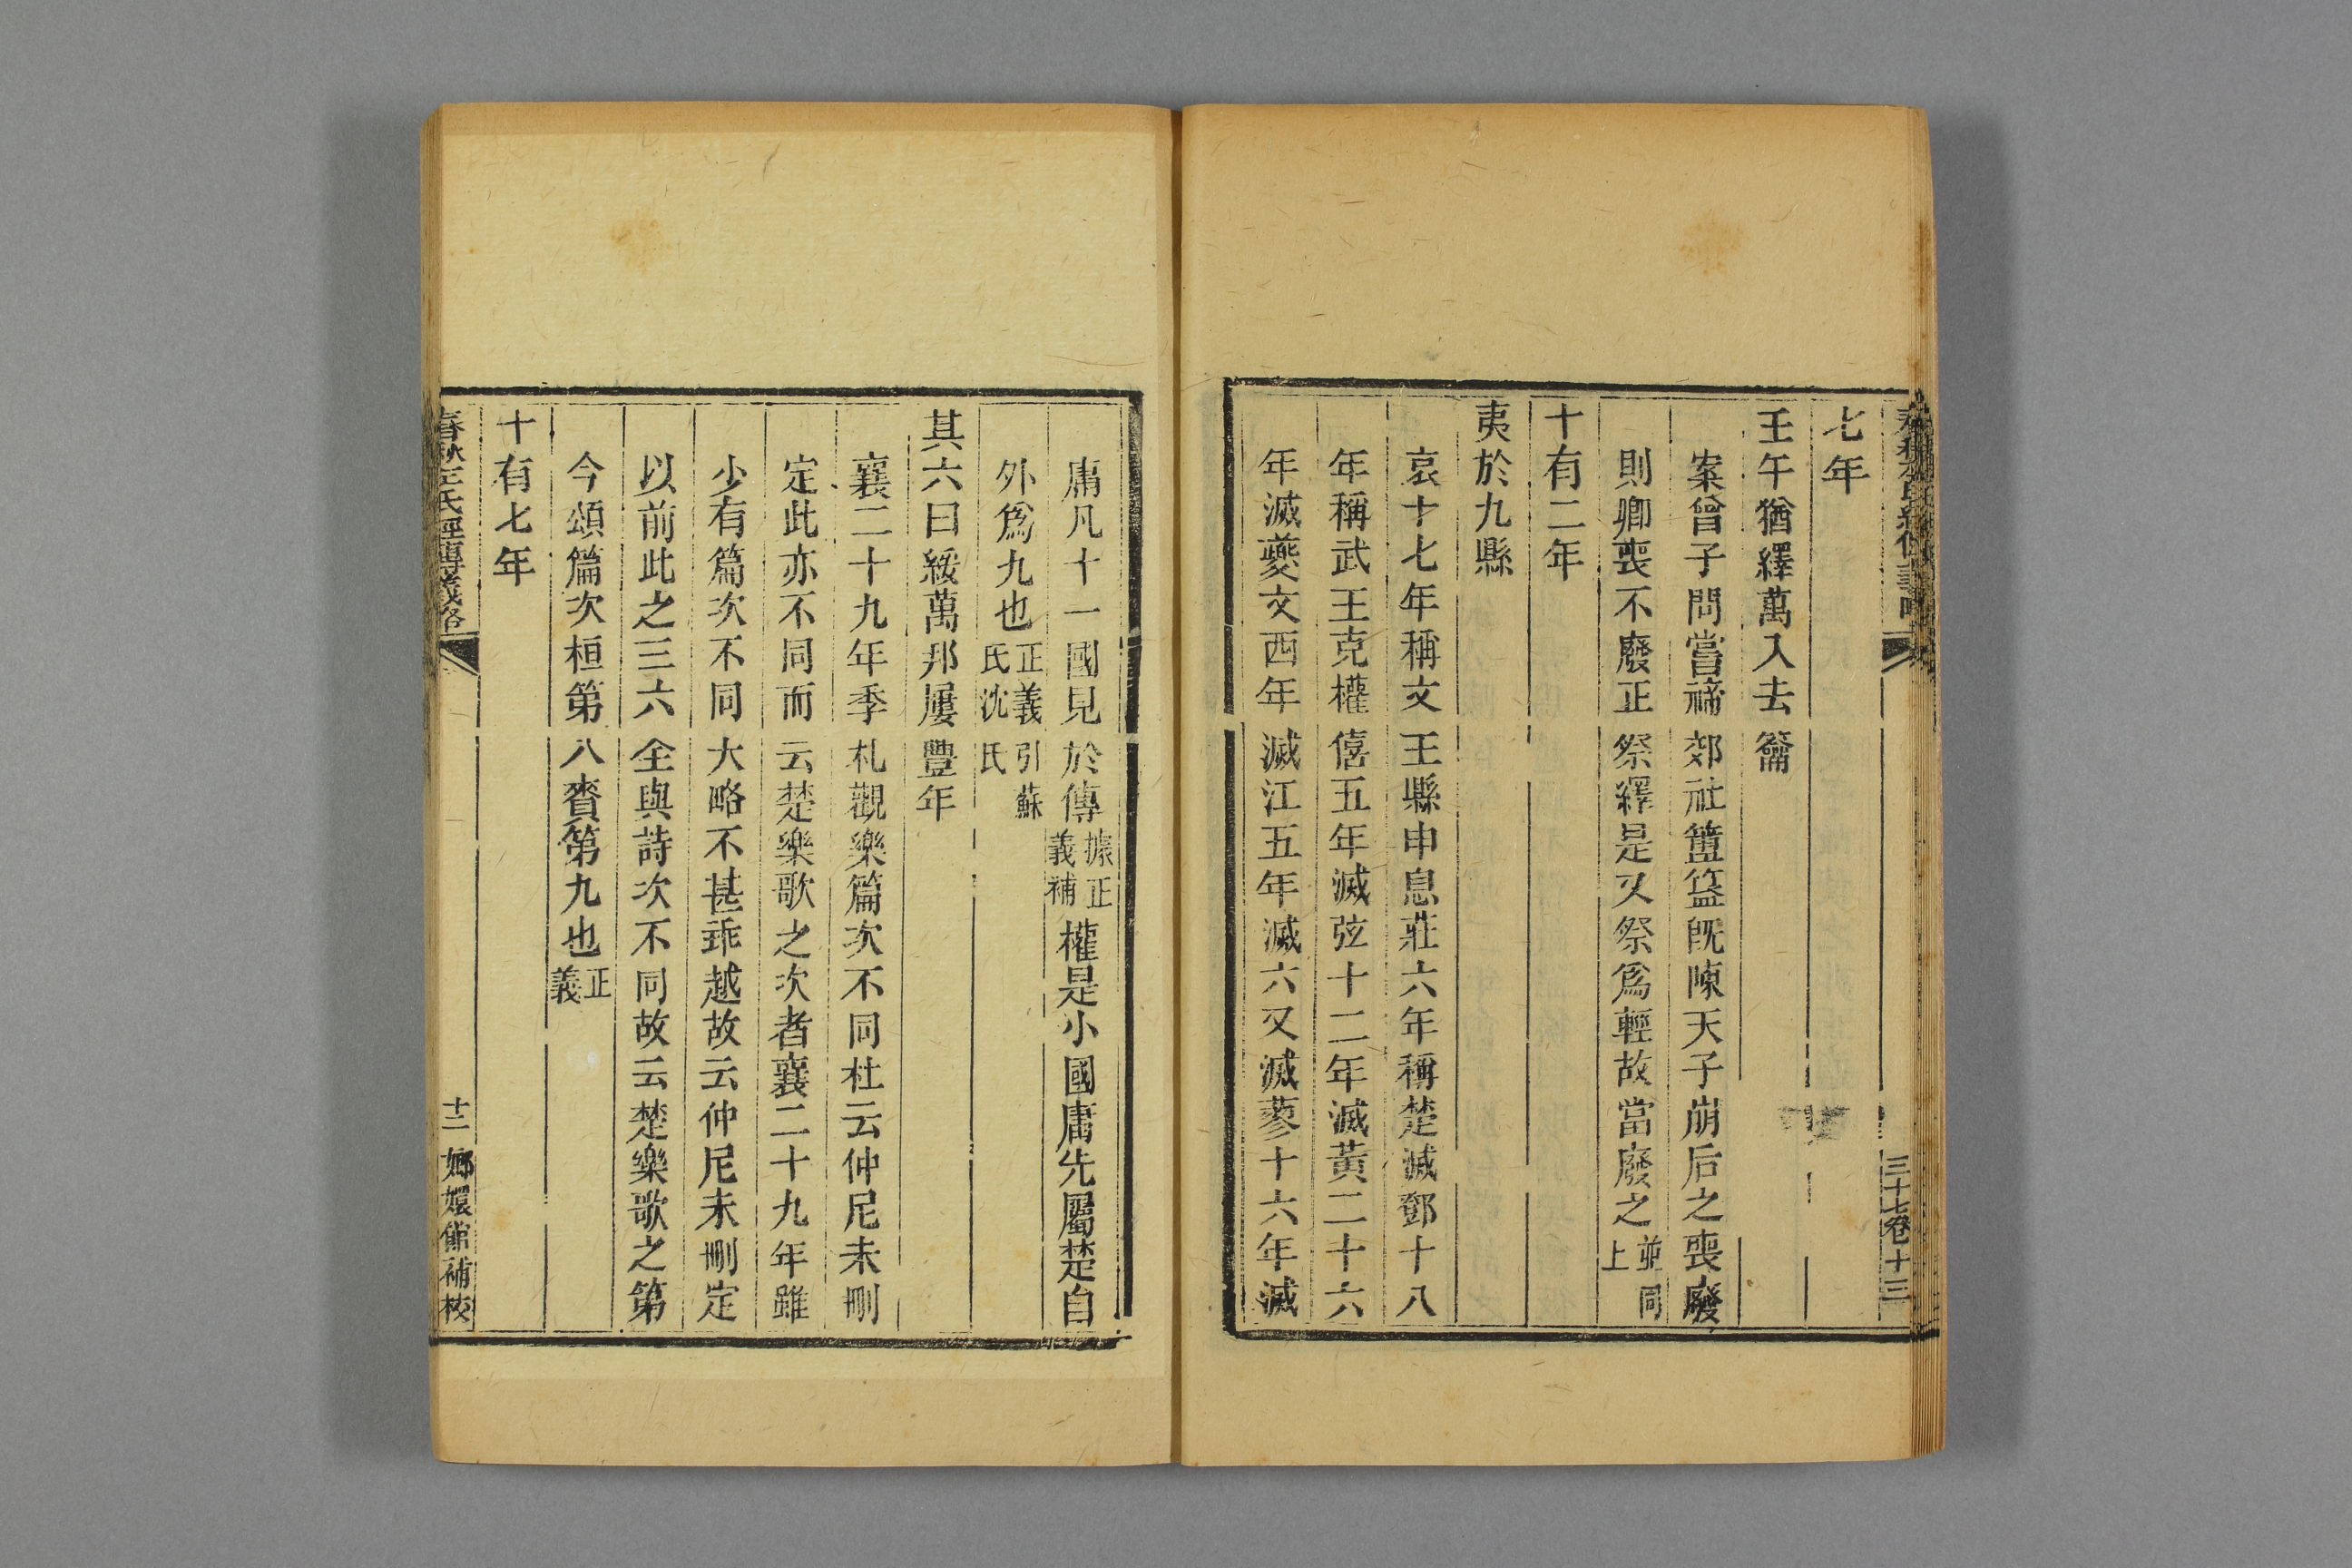 七年
壬午猶繹萬入去籥
案曾子問嘗禘郊社簠簋既陳天子崩后之喪廢
則卿喪不廢正祭繹是又祭爲輕故當廢之並同上
十有二年
夷於九縣
哀十七年稱文王縣申息莊六年稱楚滅鄧十八
年稱武王克權僖五年滅弦十二年滅黃二十六
年滅夔文四年滅江五年滅六又滅蓼十六年滅
三十七卷十三
庸凡十一國見於傳據正義補權是小國庸先屬楚自
外爲九也正義引蘇氏沈氏
其六曰綏萬邦屢豐年
襄二十九年季札觀樂篇次不同杜云仲尼未刪
定此亦不同而云楚樂歌之次者襄二十九年雖
少有篇次不同大略不甚乖越故云仲尼未刪定
以前此之三六全與詩次不同故云楚樂歌之第
今頌篇次桓第八賚第九也正義
十有七年
春秋左氏經傳義略
十二
嫏嬛館補校